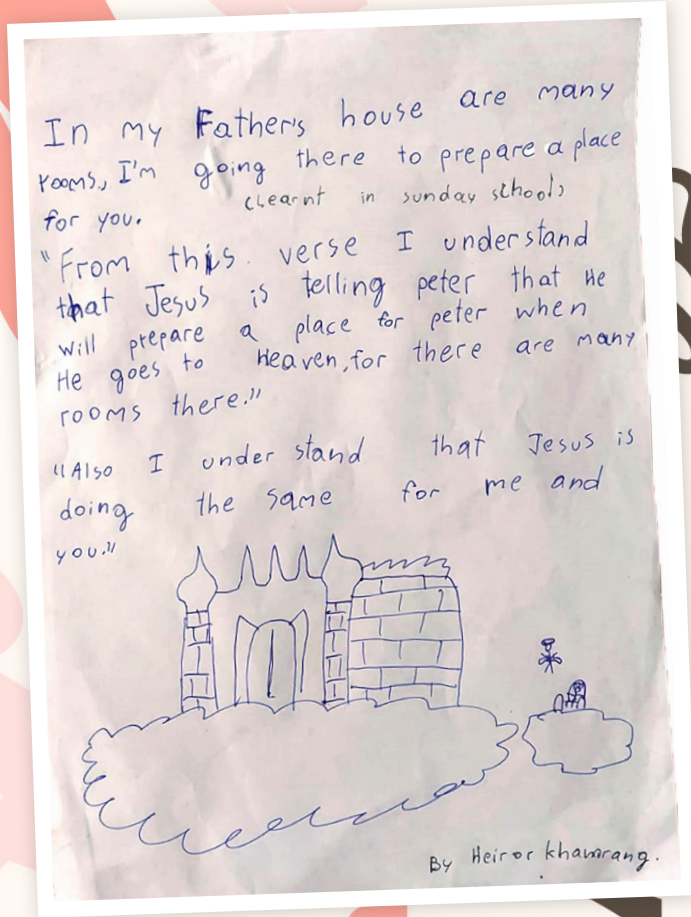 In my Father's house are many
rooms, I'm going there to prepare a place
for you. (Learnt in sunday school)
"From this verse I understand
that Jesus is telling peter that He
will prepare a place for peter when
He goes to Heaven, for there are many
rooms there."
"Also I under stand that Jesus is
doing the same for me and
you."
By Heiror khamrang.